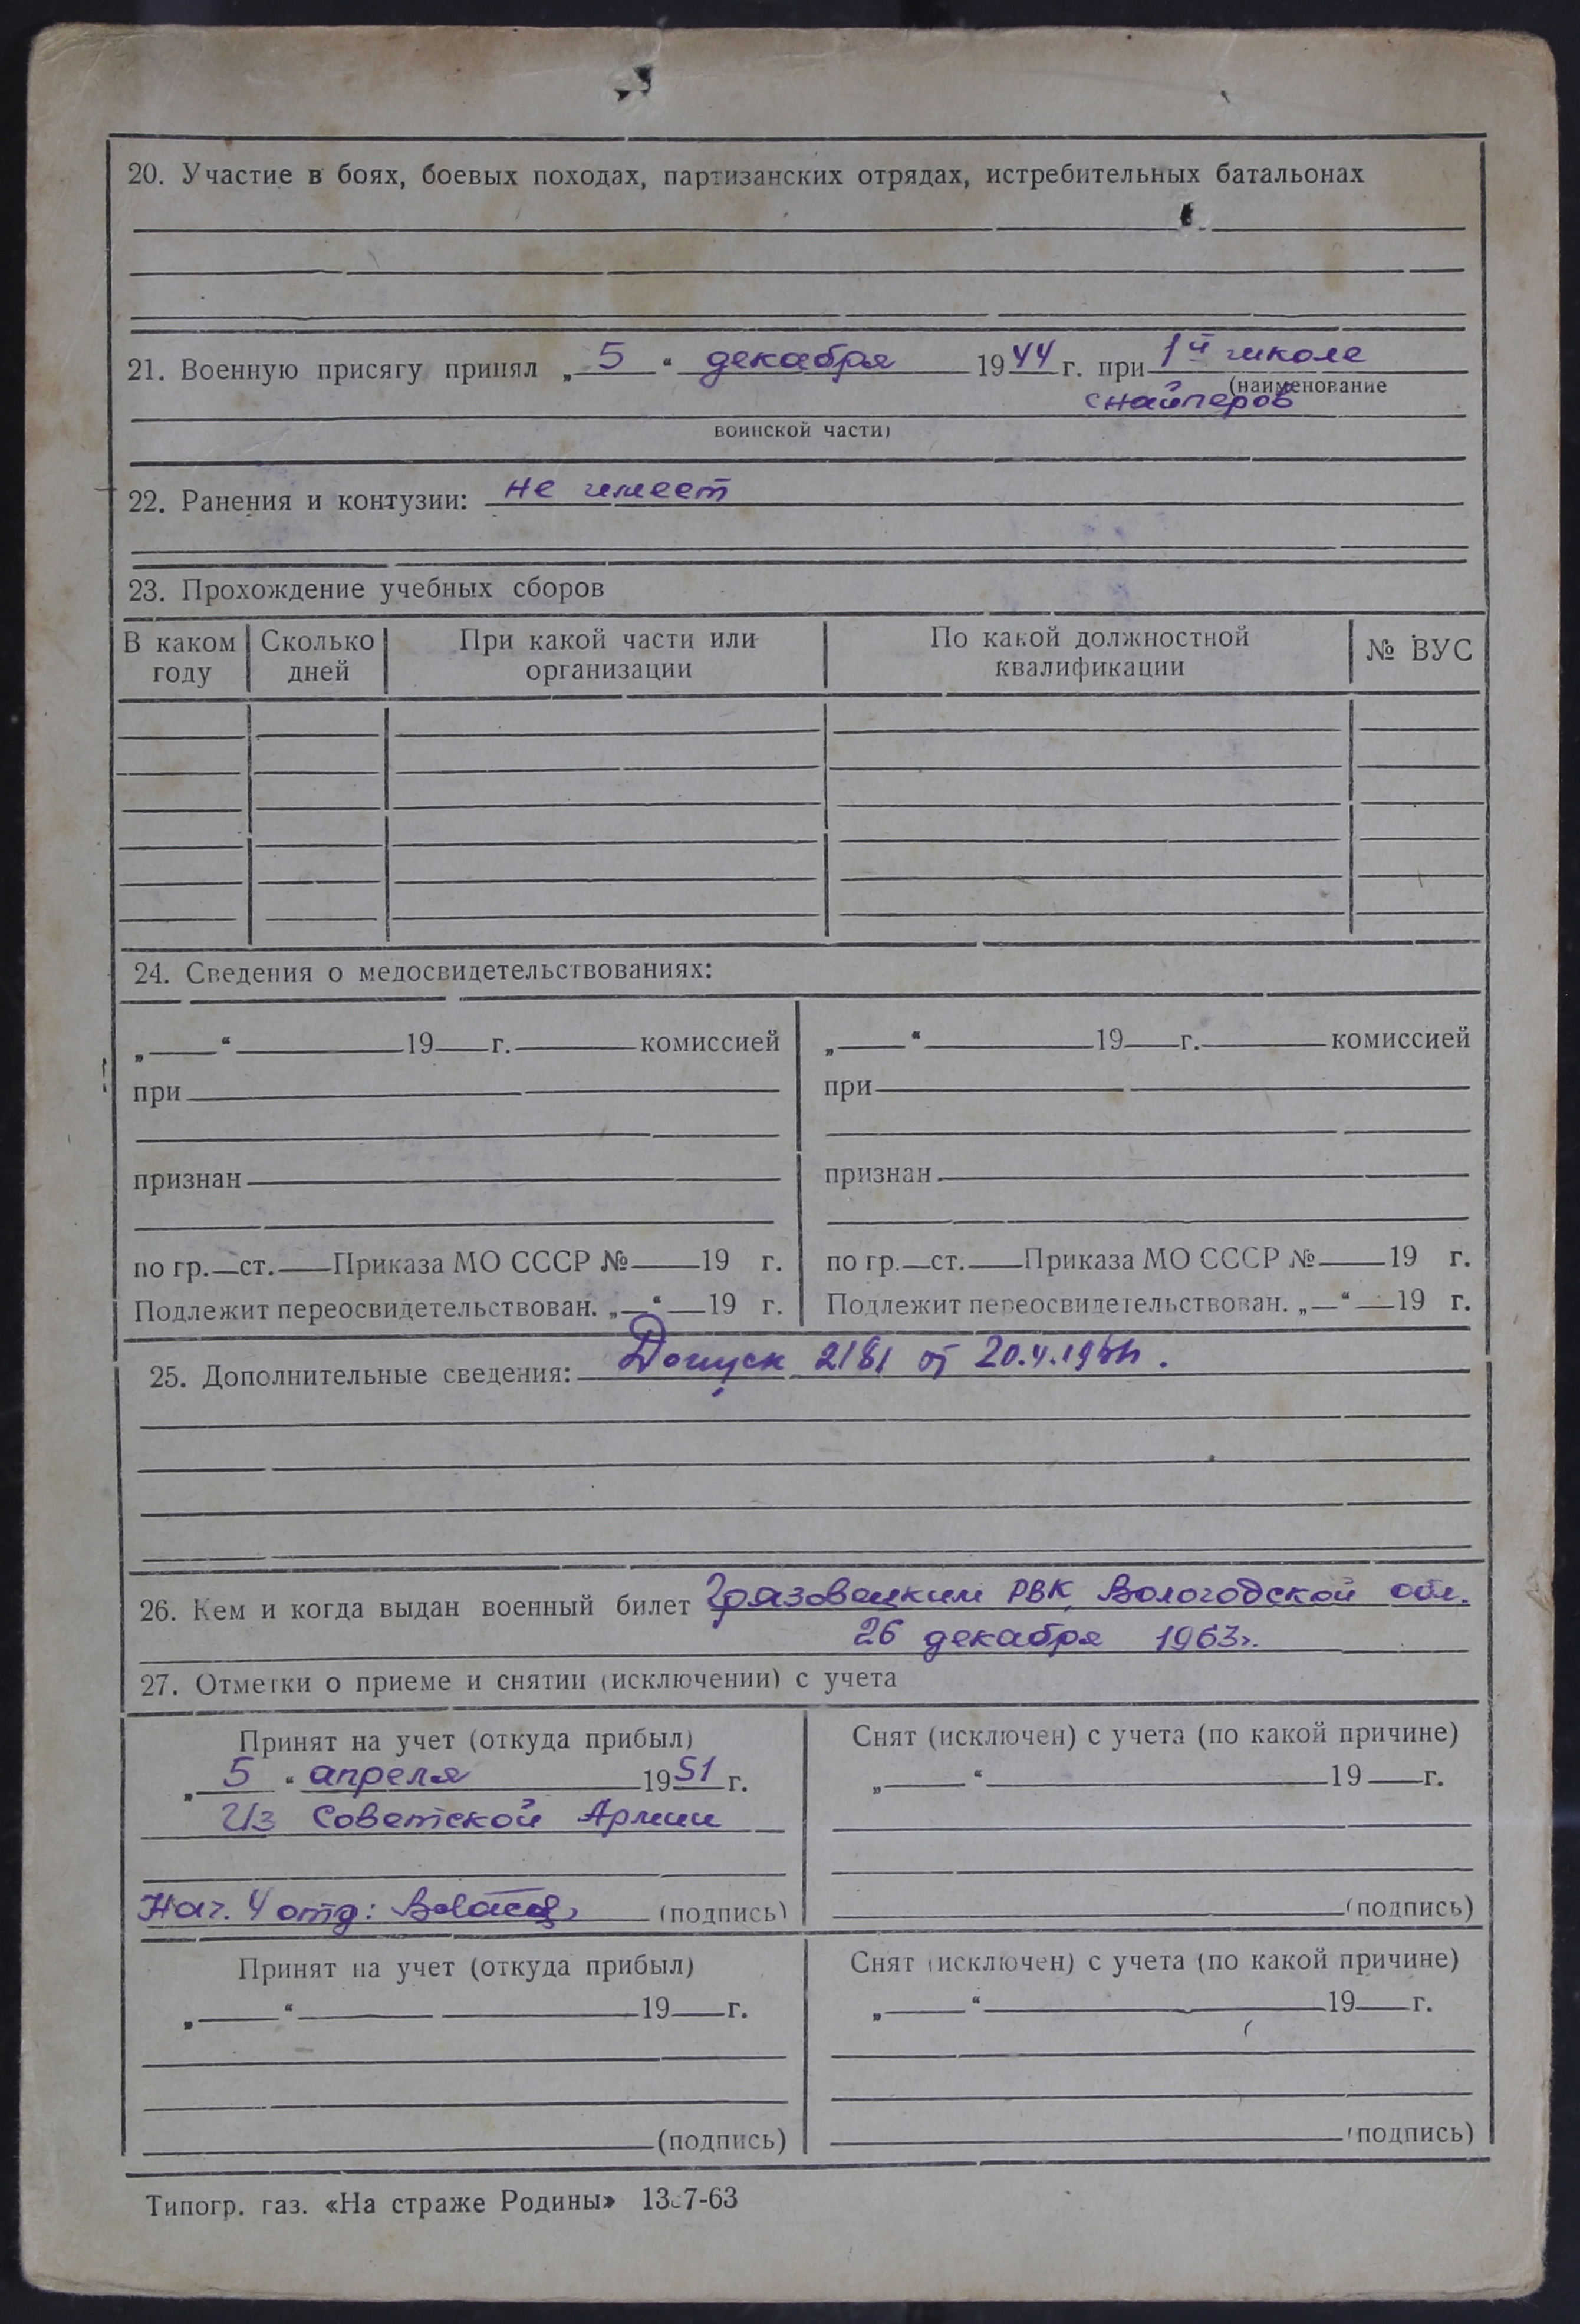 20. Участие в боях, боевых походах, партизанских отрядах, истребительных батальонах
21. Военную присягу принял „ 5 “ декабря 1944 г. при 1й школе
(наименование
снайперов
воинской части)
22. Ранения и контузии: не имеет
23. Прохождение учебных сборов
В каком году Сколько дней При какой части или организации По какой должностной квалификации № ВУС
24. Сведения о медосвидетельствованиях:
„ “ 19 г. комиссией „ “ 19 г. комиссией
при при
признан признан
по гр. ст. Приказа МО СССР № 19 г. по гр. ст. Приказа МО СССР № 19 г.
Подлежит переосвидетельствован. „ “ 19 г. Подлежит переосвидетельствован. „ “ 19 г.
25. Дополнительные сведения: Допуск 2181 от
26. Кем и когда выдан военный билет Грязовецким РВК, Вологодской обл.
26 декабря 1963г.
27. Отметки о приеме и снятии (исключении) с учета
Принят на учет (откуда прибыл) Снят (исключен) с учета (по какой причине)
„ 5 “ апреля 1951 г. „ “ 19 г.
Из Советской Армии
Нач. 4 отд: (подпись) (подпись)
Принят на учет (откуда прибыл) Снят (исключен) с учета (по какой причине)
„ “ 19 г. „ “ 19 г.
(подпись) (подпись)
Типогр. газ. «На страже Родины»